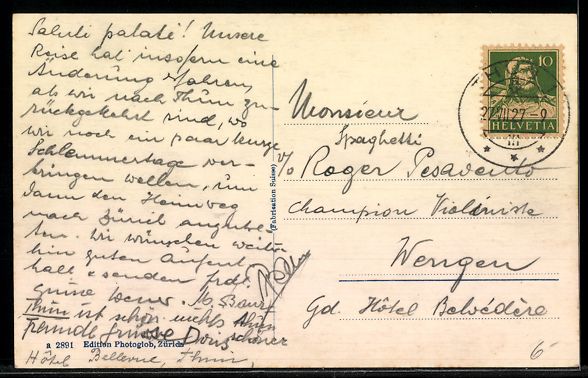 Saluti patati! Unsere
Reise hat insofern eine
Änderung erfahren,
als wir nach Thun zu-
rückgekehrt sind, wo
wir noch ein paar kurze
Schlemmertage ver-
bringen wollen, um
dann den Heimweg
nach Zürich anzutre-
ten. Wir wünschen weiter-
hin guten Aufent-
halt & senden frdl.
Grüsse
Thun ist schön nichts
fremde Grüsse Doris
a 2891 Edition Photoglob, Zürich
Hôtel Bellevue, Thun
(Fabrication Suisse)
10
HELVETIA
27-9
Monsieur
Spaghetti
Roger Pesavento
Champion Violiniste
Wengen
Gd. Hôtel Belvédère
6